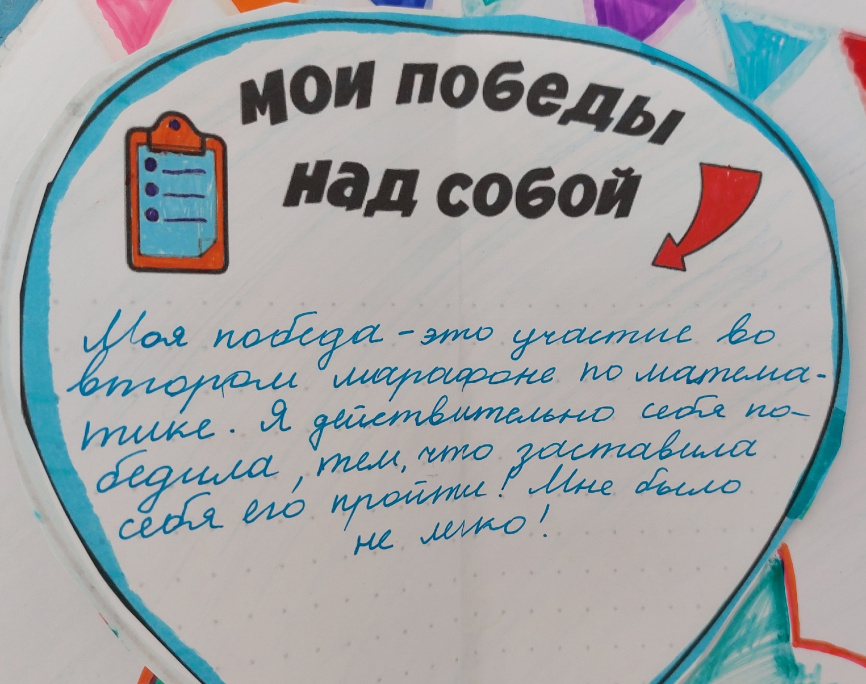 Мои победы
над собой
Моя победа - это участие во
втором марафоне по матема-
тике. Я действительно себя по-
бедила, тем, что заставила
себя его пройти! Мне было
не легко!